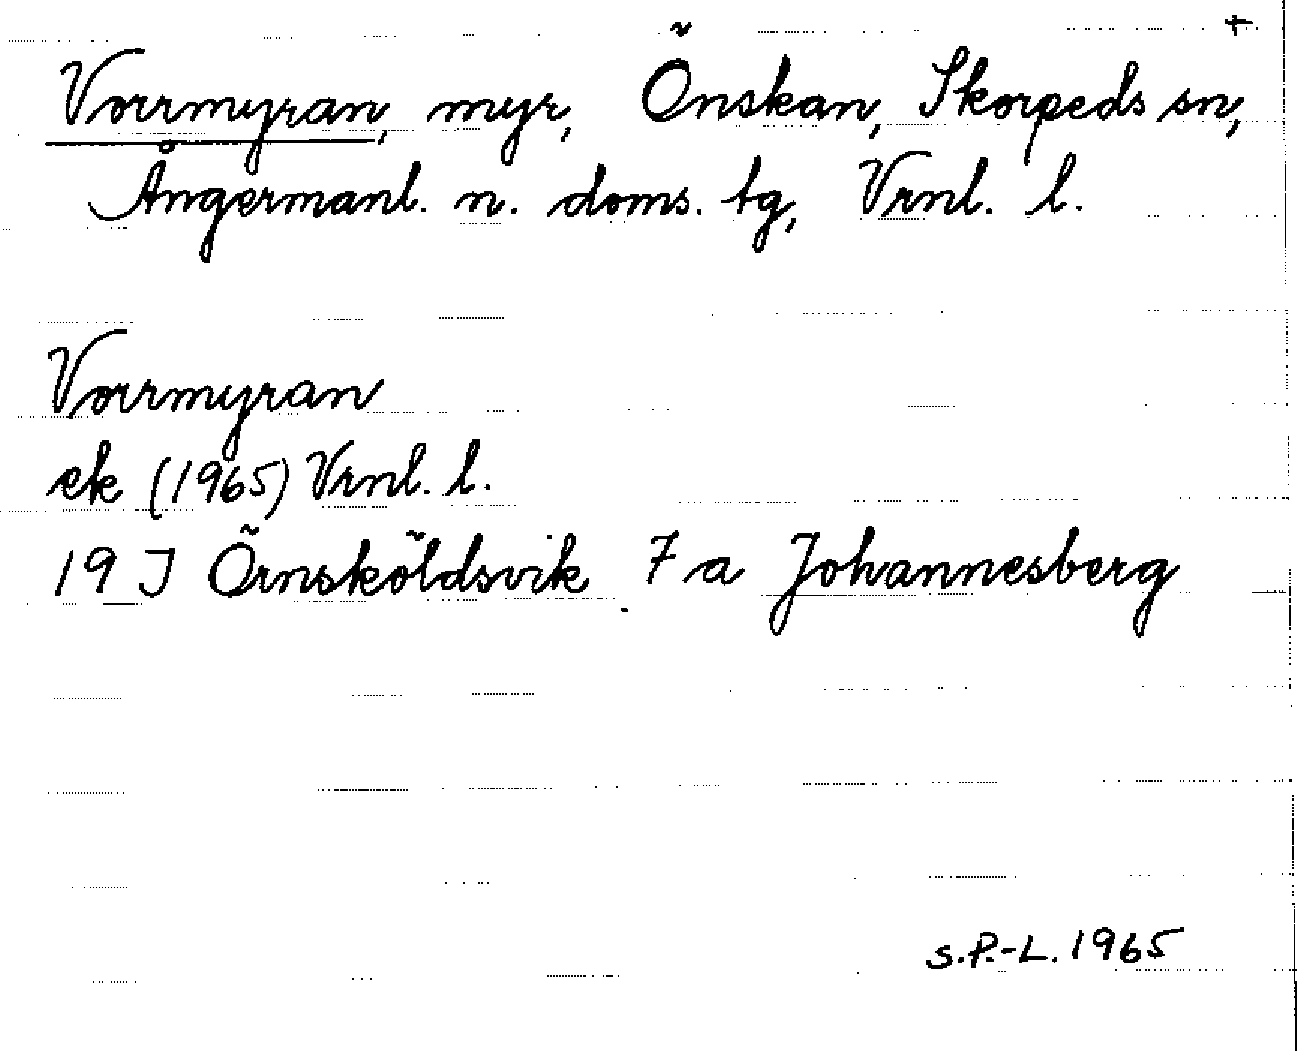 +
Vorrmyran, myr, Önskan, Skorpeds sn,
Ångermanl. n. doms. tg, Vrnl. l.
Vorrmyran
ek (1965) Vrnl. l.
19 J Örnsköldsvik 7 a Johannesberg
S.P.-L. 1965